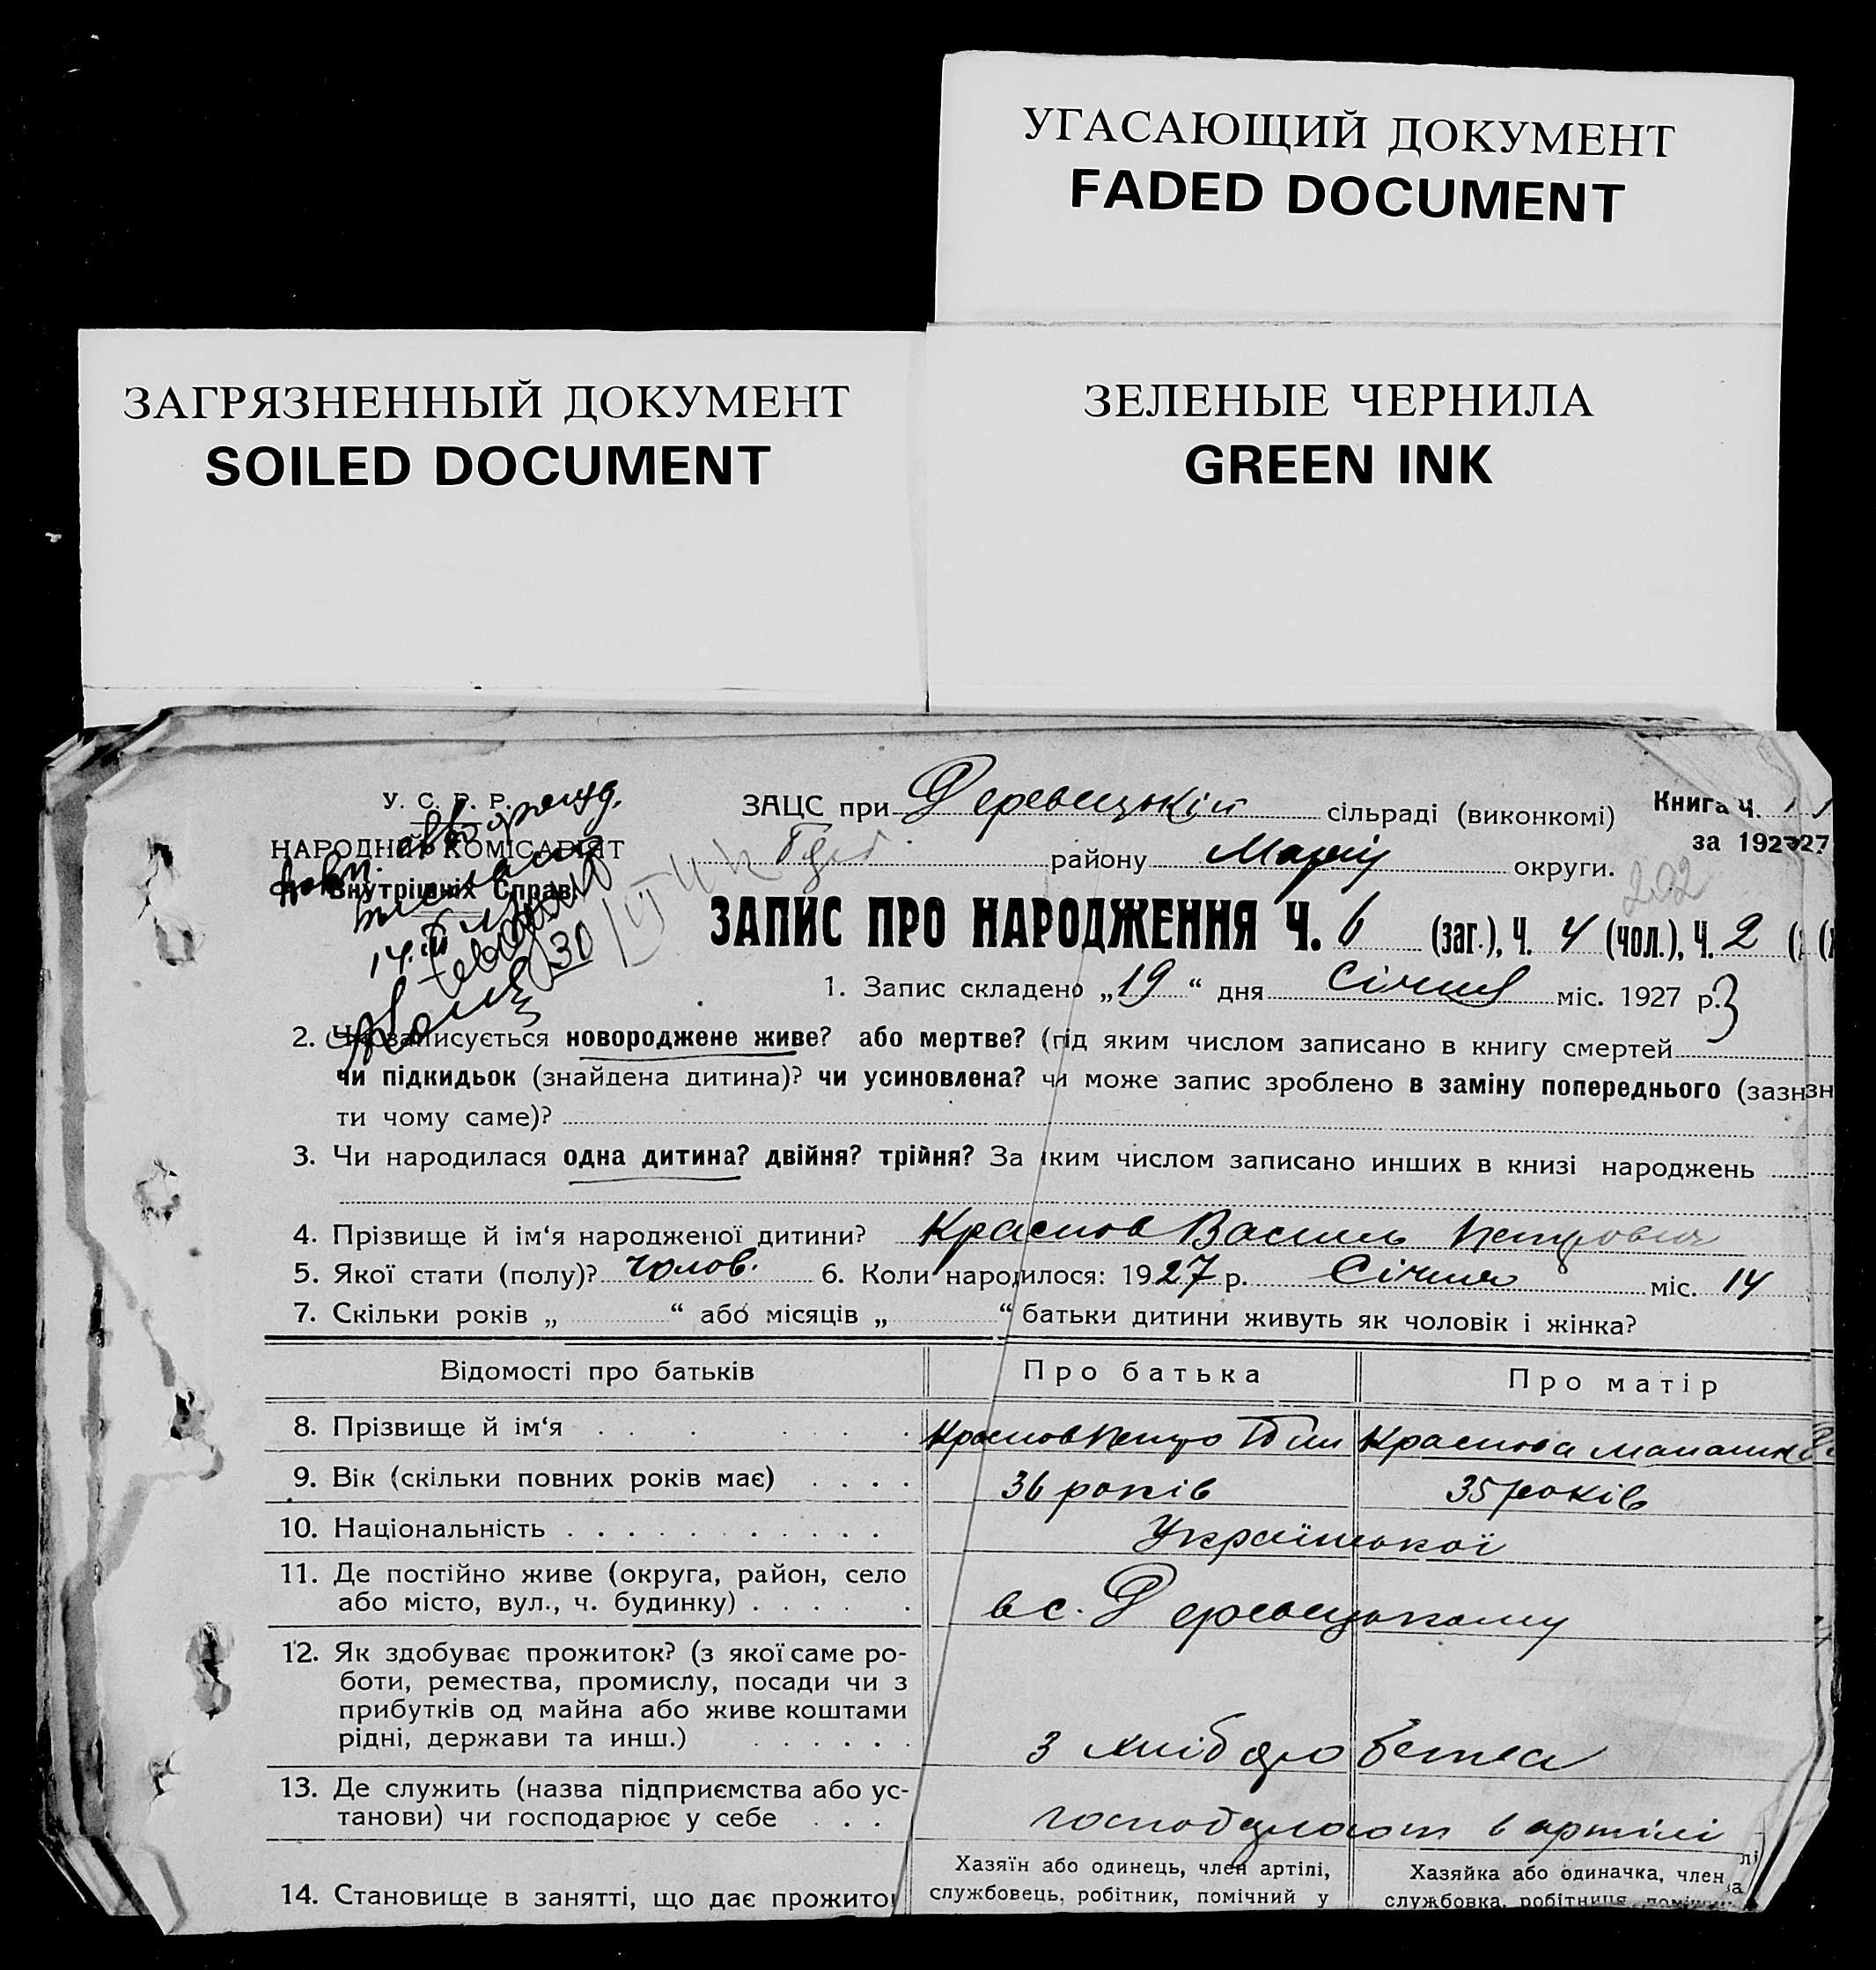 УГАСАЮЩИЙ ДОКУМЕНТ
FADED DOCUMENT
ЗАГРЯЗНЕННЫЙ ДОКУМЕНТ
SOILED DOCUMENT
ЗЕЛЕНЫЕ ЧЕРНИЛА
GREEN INK
У. С. Р. Р.
НАРОДНИЙ КОМІСАРІЯТ
Внутрішніх Справ
14.III
30
ЗАЦС при сільраді (виконкомі)
Книга ч.
за 1927
району Марій округи.
202
ЗАПИС ПРО НАРОДЖЕННЯ Ч. 6 (заг.), Ч. 4 (чол.), Ч. 2
1. Запис складено „19“ дня Січня міс. 1927 р.
2. Чи записується новороджене живе? або мертве? (під яким числом записано в книгу смертей
чи підкидьок (знайдена дитина)? чи усиновлена? чи може запис зроблено в заміну попереднього (зазн
ти чому саме)?
3. Чи народилася одна дитина? двійня? трійня? За яким числом записано инших в книзі народжень
4. Прізвище й ім‘я народженої дитини? Краснов Василь Петрович
5. Якої стати (полу)? чолов. 6. Коли народилося: 1927 р. Січня міс. 14
7. Скільки років „ “ або місяців „ “ батьки дитини живуть як чоловік і жінка?
Відомості про батьків Про батька Про матір
8. Прізвище й ім‘я Краснов Петро Краснова
9. Вік (скільки повних років має) 36 років 35 років
10. Національність Української
11. Де постійно живе (округа, район, село
або місто, вул., ч. будинку) в с.
12. Як здобуває прожиток? (з якої саме ро-
боти, ремества, промислу, посади чи з
прибутків од майна або живе коштами
рідні, держави та инш.) з хліборобства
13. Де служить (назва підприємства або ус-
танови) чи господарює у себе в артілі
14. Становище в занятті, що дає прожиток
Хазяїн або одинець, член артілі,
службовець, робітник, помічний у
Хазяйка або одиначка, член
службовка, робітниця